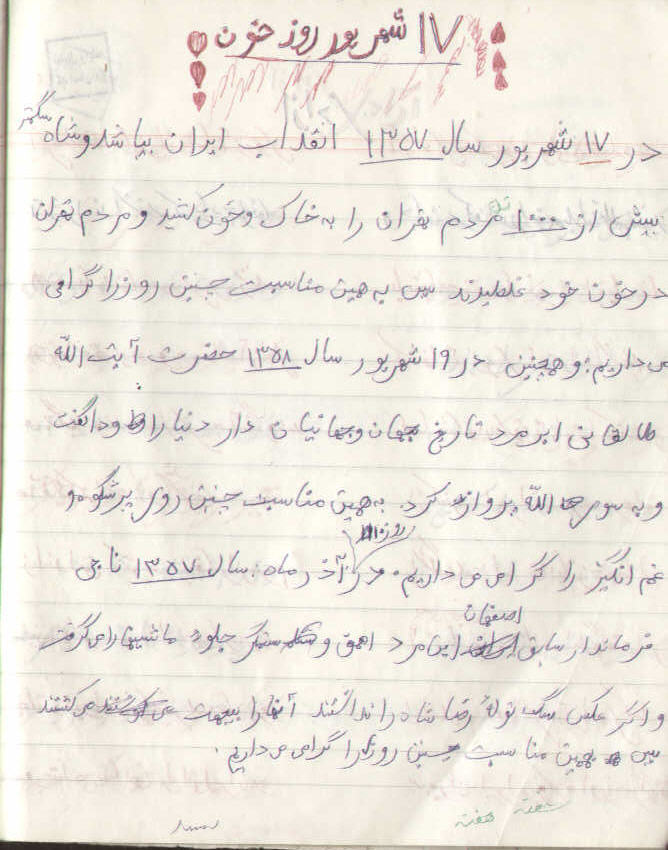 ۱۷ شهریور روز خون
در ۱۷ شهریور سال ۱۳۵۷ انقلاب ایران بپا شد و شاه ستمگر
بیش از ۱۰۰۰ تن مردم تهران را به خاک و خون کشید و مردم تهران
در خون خود غلطیدند پس به همین مناسبت چنین روز را گرامی
می داریم: و همچنین در ۱۹ شهریور سال ۱۳۵۸ حضرت آیت الله
طالقانی ابر مرد تاریخ جهان و جهانیان دار دنیا را وداع گفت
و به سوی الله پرواز کرد. به همین مناسبت چنین روز پر شکوه و
غم انگیز را گرامی می داریم. در روز ۲ آذر ماه: سال ۱۳۵۷ ناجی
فرماندار سابق اصفهان این مرد احمق و ستمگر جلود ماشینها را می گرفت
و اگر عکس سگ توله رضا شاه را نداشتند آنها را بیجهت می کشتند
پس به همین مناسبت چنین روز را گرامی می داریم.
هفته